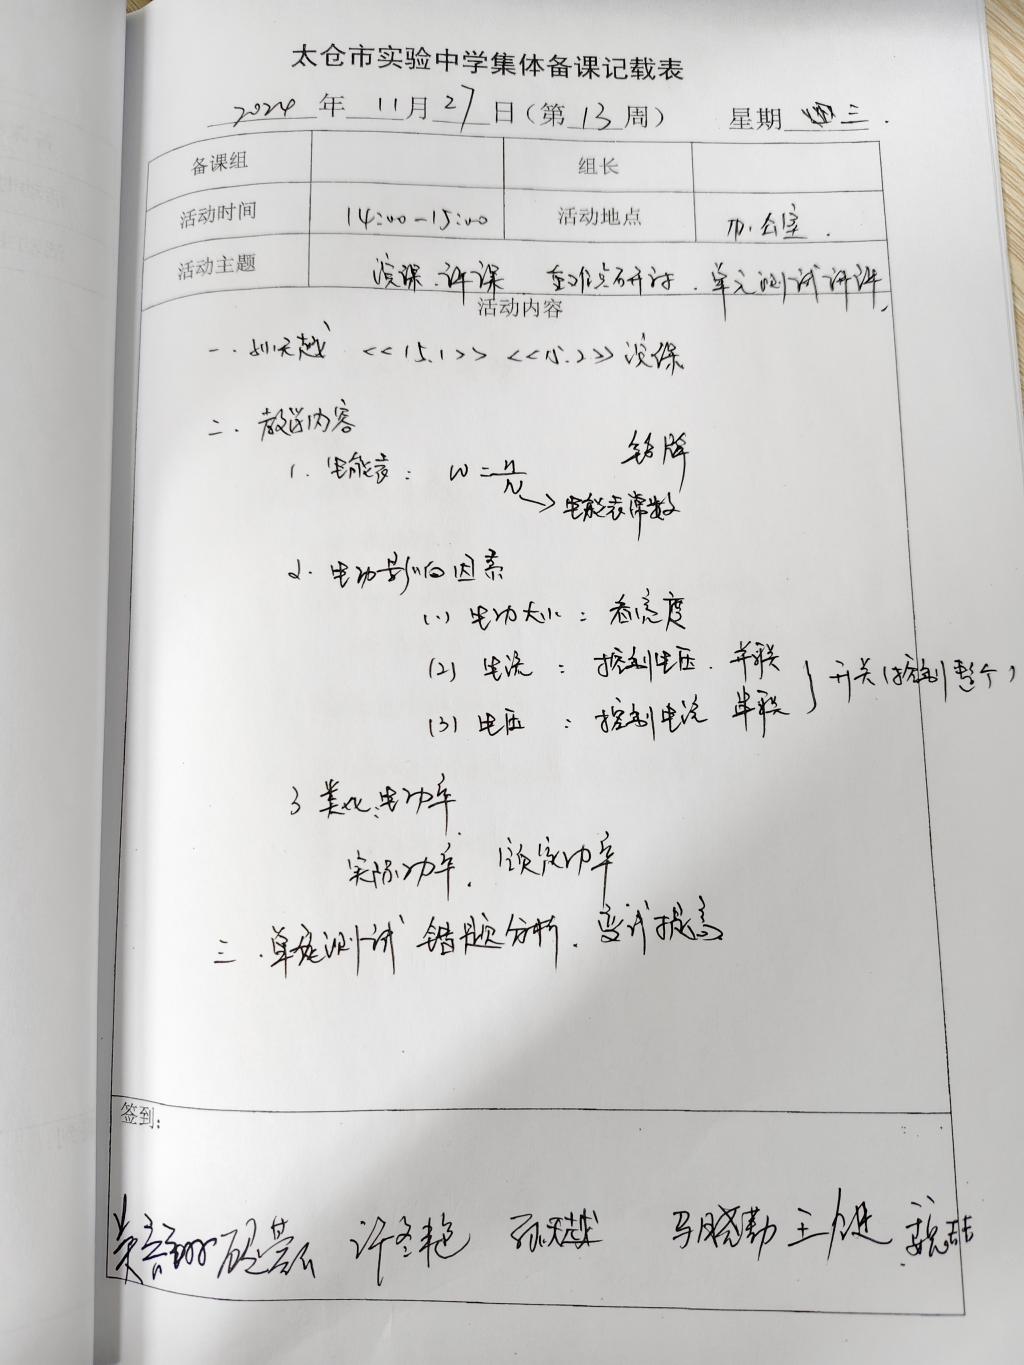 太仓市实验中学集体备课记载表
2024 年 11 月 27 日（第 13 周） 星期 三.
备课组 组长
活动时间 14:00-15:00 活动地点 办公室.
活动主题 演课.评课 重难点研讨.单元测试讲评.
活动内容
一. 天越 <<15.1>> <<15.2>> 演课
二. 教学内容
铭牌
1. 电能表: W=n/N
→电能表常数
2. 电功影响因素
(1) 电功大小: 看亮度
(2) 电流: 控制电压.并联
(3) 电压: 控制电流 串联 } 开关(控制整个)
3 类比.电功率
实际功率. 额定功率
三.单元测试 错题分析.变式提高
签到:
许冬艳 孙天越 马晓勤 王建